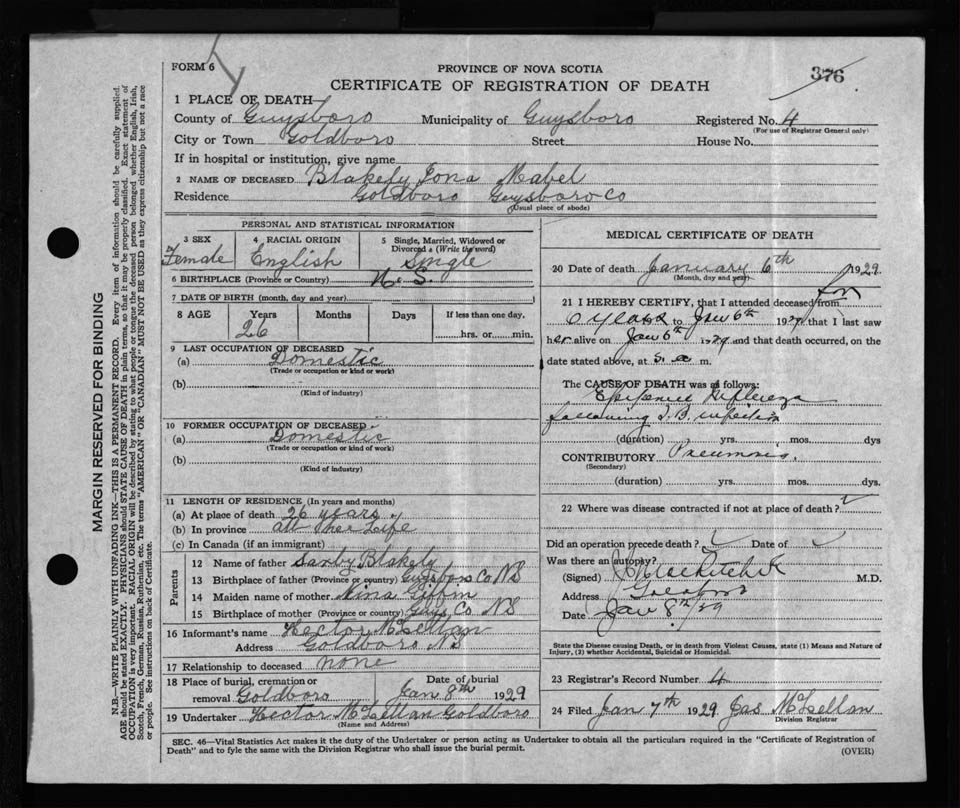 FORM 6
376
PROVINCE OF NOVA SCOTIA
CERTIFICATE OF REGISTRATION OF DEATH
1 PLACE OF DEATH
County of Guysboro Municipality of Guysboro Registered No. 4
(For use of Registrar General only)
City or Town Goldboro Street House No.
If in hospital or institution, give name
2 NAME OF DECEASED Blakely Iona Mabel
Residence Goldboro Guysboro Co
(Usual place of abode)
PERSONAL AND STATISTICAL INFORMATION
3 SEX Female
4 RACIAL ORIGIN English
5 Single, Married, Widowed or Divorced (Write the word) Single
6 BIRTHPLACE (Province or Country) N. S.
7 DATE OF BIRTH (month, day and year)
8 AGE Years 26 Months Days If less than one day, hrs. or min.
9 LAST OCCUPATION OF DECEASED
(a) Domestic
(Trade or occupation or kind or work)
(b)
(Kind of industry)
10 FORMER OCCUPATION OF DECEASED
(a) Domestic
(Trade or occupation or kind of work)
(b)
(Kind of industry)
11 LENGTH OF RESIDENCE (In years and months)
(a) At place of death 26 years
(b) In province all Life
(c) In Canada (if an immigrant)
Parents
12 Name of father Blakely
13 Birthplace of father (Province or country) Guysboro Co NS
14 Maiden name of mother Nina Giffin
15 Birthplace of mother (Province or country) Guys Co NS
16 Informant's name Hector McLellan
Address Goldboro NS
17 Relationship to deceased none
18 Place of burial, cremation or removal Goldboro Date of burial Jan 8th 1929
19 Undertaker Hector McLellan Goldboro
(Name and Address)
MEDICAL CERTIFICATE OF DEATH
20 Date of death January 6th 1929
(Month, day and year)
21 I HEREBY CERTIFY, that I attended deceased from for
years to Jan 6th 1929 that I last saw
her alive on Jan 6th 1929 and that death occurred, on the
date stated above, at 5. a m.
The CAUSE OF DEATH was as follows:
Influenza
following T.B. infection
(duration) yrs. mos. dys
CONTRIBUTORY Pneumonia
(Secondary)
(duration) yrs. mos. dys.
22 Where was disease contracted if not at place of death?
Did an operation precede death? Date of
Was there an autopsy?
(Signed) M.D.
Address
Date Jan 8th/29
State the Disease causing Death, or in death from Violent Causes, state (1) Means and Nature of
Injury, (2) whether Accidental, Suicidal or Homicidal.
23 Registrar's Record Number 4
24 Filed Jan 7th 1929 Jas McLellan
Division Registrar
SEC. 46—Vital Statistics Act makes it the duty of the Undertaker or person acting as Undertaker to obtain all the particulars required in the "Certificate of Registration of
Death" and to fyle the same with the Division Registrar who shall issue the burial permit.
(OVER)
MARGIN RESERVED FOR BINDING
N.B.—WRITE PLAINLY WITH UNFADING INK—THIS IS A PERMANENT RECORD. Every item of information should be carefully supplied.
AGE should be stated EXACTLY. PHYSICIANS should STATE CAUSE OF DEATH in plain terms, so that it may be properly classified. Exact statement of
OCCUPATION is very important. RACIAL ORIGIN will be described by stating to what people or tongue the deceased person belonged whether English, Irish,
Scotch, French, German, Russian, Ruthenian, etc. The terms "AMERICAN" OR "CANADIAN" MUST NOT BE USED as they express citizenship but not a race
or people. See instructions on back of Certificate.